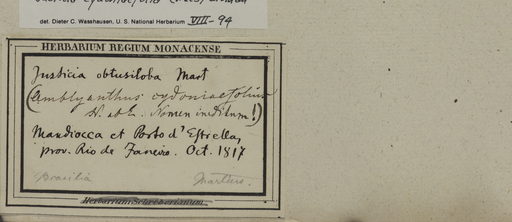 det. Dieter C. Wasshausen, U. S. National Herbarium VIII-94
HERBARIUM REGIUM MONACENSE
Justicia obtusiloba Mart
(Amblyanthus cydoniaefolius
N. ab E. Nomen ineditum!)
Mandiocca et Porto d'Estrella,
prov. Rio de Janeiro. Oct. 1817
Brasilia Martius.
Herbarium Schreberianum